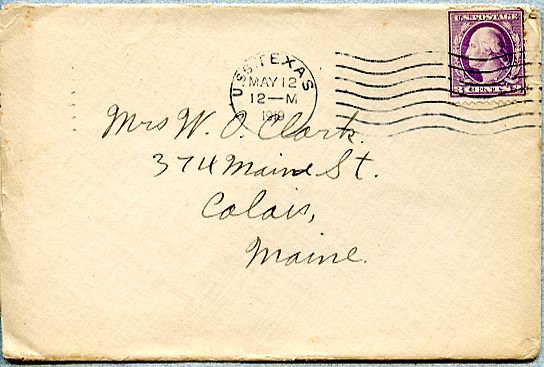 U.S. POSTAGE
U.S.S. TEXAS
MAY 12
12-M
1919
3 CENTS 3
Mrs W. O. Clark.
374 Maine St.
Calais,
Maine.